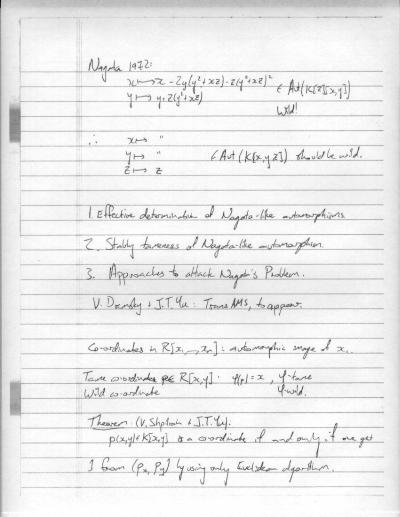 Nagata 1972:
x ↦ x - 2y(y²+xz) - z(y²+xz)²
y ↦ y + z(y²+xz) ∈ Aut(K[z][x,y])
Wild!
∴ x ↦ "
y ↦ " ∈ Aut(K[x,y,z]) should be wild.
z ↦ z
1. Effective determination of Nagata-like automorphisms
2. Stably tameness of Nagata-like automorphism.
3. Approaches to attack Nagata's Problem.
V. Drensky + J.T. Yu: Trans AMS, to appear.
Co-ordinates in R[x₁,...,xₙ]: automorphic image of x₁.
Tame coordinates p∈R[x,y]: φ(p)=x, φ-tame
Wild coordinate φ-wild.
Theorem: (V. Shpilrain + J.T. Yu).
p(x,y)∈K[x,y] is a coordinate if and only if one get
1 from (Px, Py) by using only Euclidean algorithm.